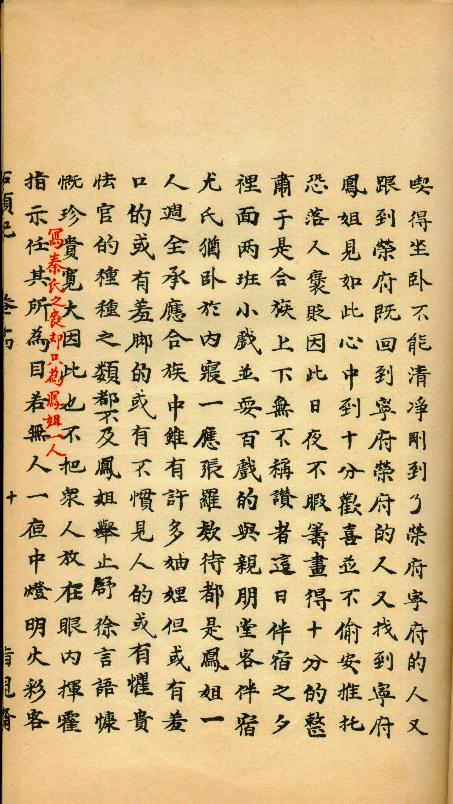 喫得坐卧不能清净剛到了榮府寧府的人又
跟到榮府既回到寧府榮府的人又找到寧府
鳳姐見如此心中到十分歡喜並不偷安推托
恐落人褒貶因此日夜不暇籌畫得十分的整
肅于是合族上下無不稱讚者這日伴宿之夕
裡面两班小戲並耍百戲的與親朋堂客伴宿
尤氏猶卧於内寢一應張羅欵待都是鳳姐一
人週全承應合族中雖有許多妯娌但或有羞
口的或有羞脚的或有不慣見人的或有懼貴
怯官的種種之類都不及鳳姐舉止舒徐言語慷
慨珍貴寬大因此也不把衆人放在眼内揮霍
寫秦氏之喪却只為鳳姐一人
指示任其所為目若無人一夜中燈明火彩客
十